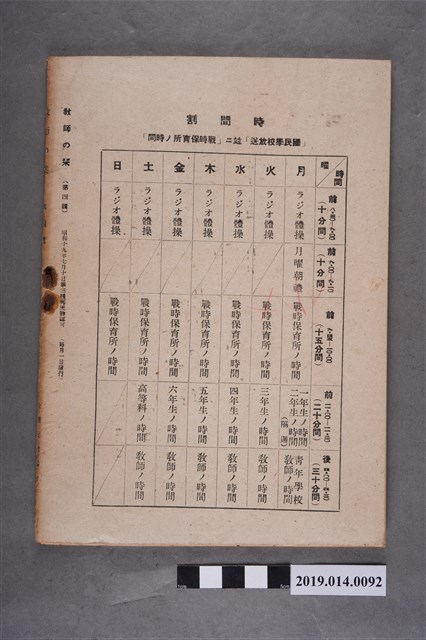 時間割
「國民學校放送」竝ニ「戰時保育所ノ時間」
時間
曜
前
(十分間)
前
(十分間)
前
(十五分間)
前
(二十分間)
後
(三十分間)
月
ラジオ體操
月曜朝禮
戰時保育所ノ時間
一年生ノ時間
二年生ノ時間
(隔週)
青年學校
教師ノ時間
火
ラジオ體操
戰時保育所ノ時間
三年生ノ時間
教師ノ時間
水
ラジオ體操
戰時保育所ノ時間
四年生ノ時間
教師ノ時間
木
ラジオ體操
戰時保育所ノ時間
五年生ノ時間
教師ノ時間
金
ラジオ體操
戰時保育所ノ時間
六年生ノ時間
教師ノ時間
土
ラジオ體操
戰時保育所ノ時間
高等科ノ時間
教師ノ時間
日
ラジオ體操
戰時保育所ノ時間
教師の栞
(第四輯)
2019.014.0092